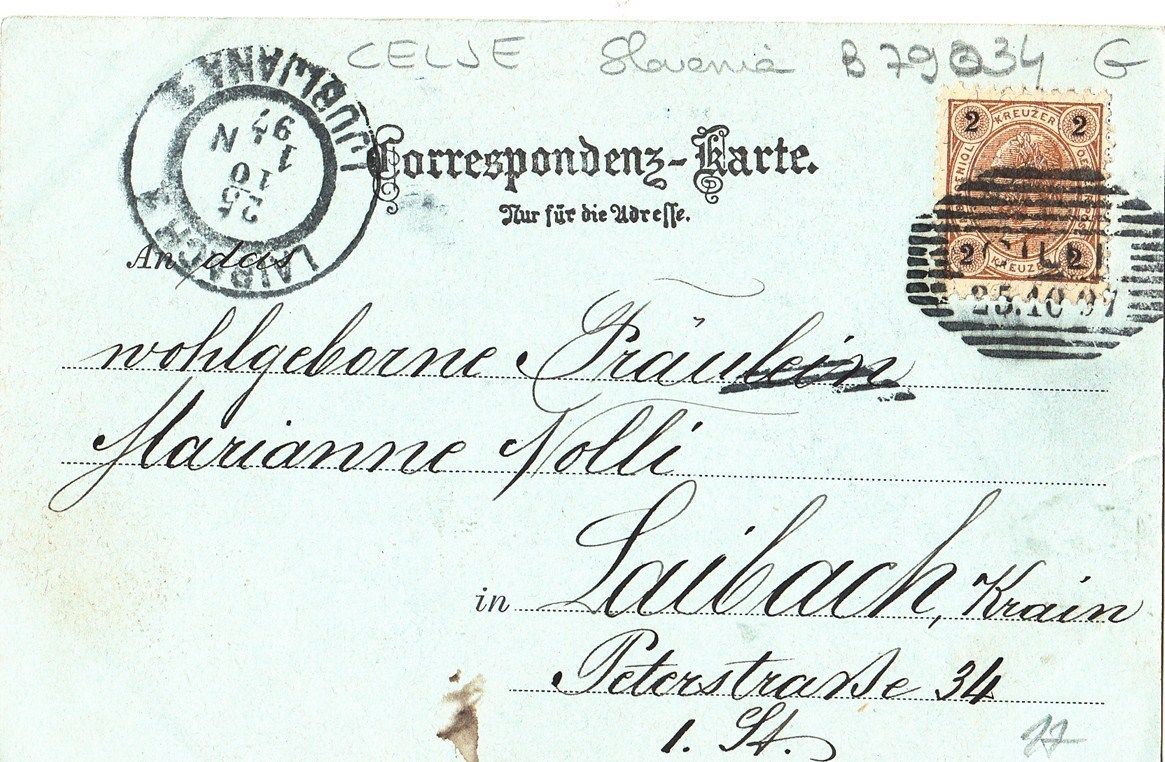 CELJE Slovenia B 79034 G
LAIBACH LJUBLJANA
25
10
1
97 N
2 KREUZER 2
2 KREUZER 2
CILLI
25.10.97
Correspondenz-Karte.
Nur für die Adresse.
An das
wohlgeborne Fräulein
Marianne Nolli
in Laibach, Krain
Peterstraße 34
1. St.